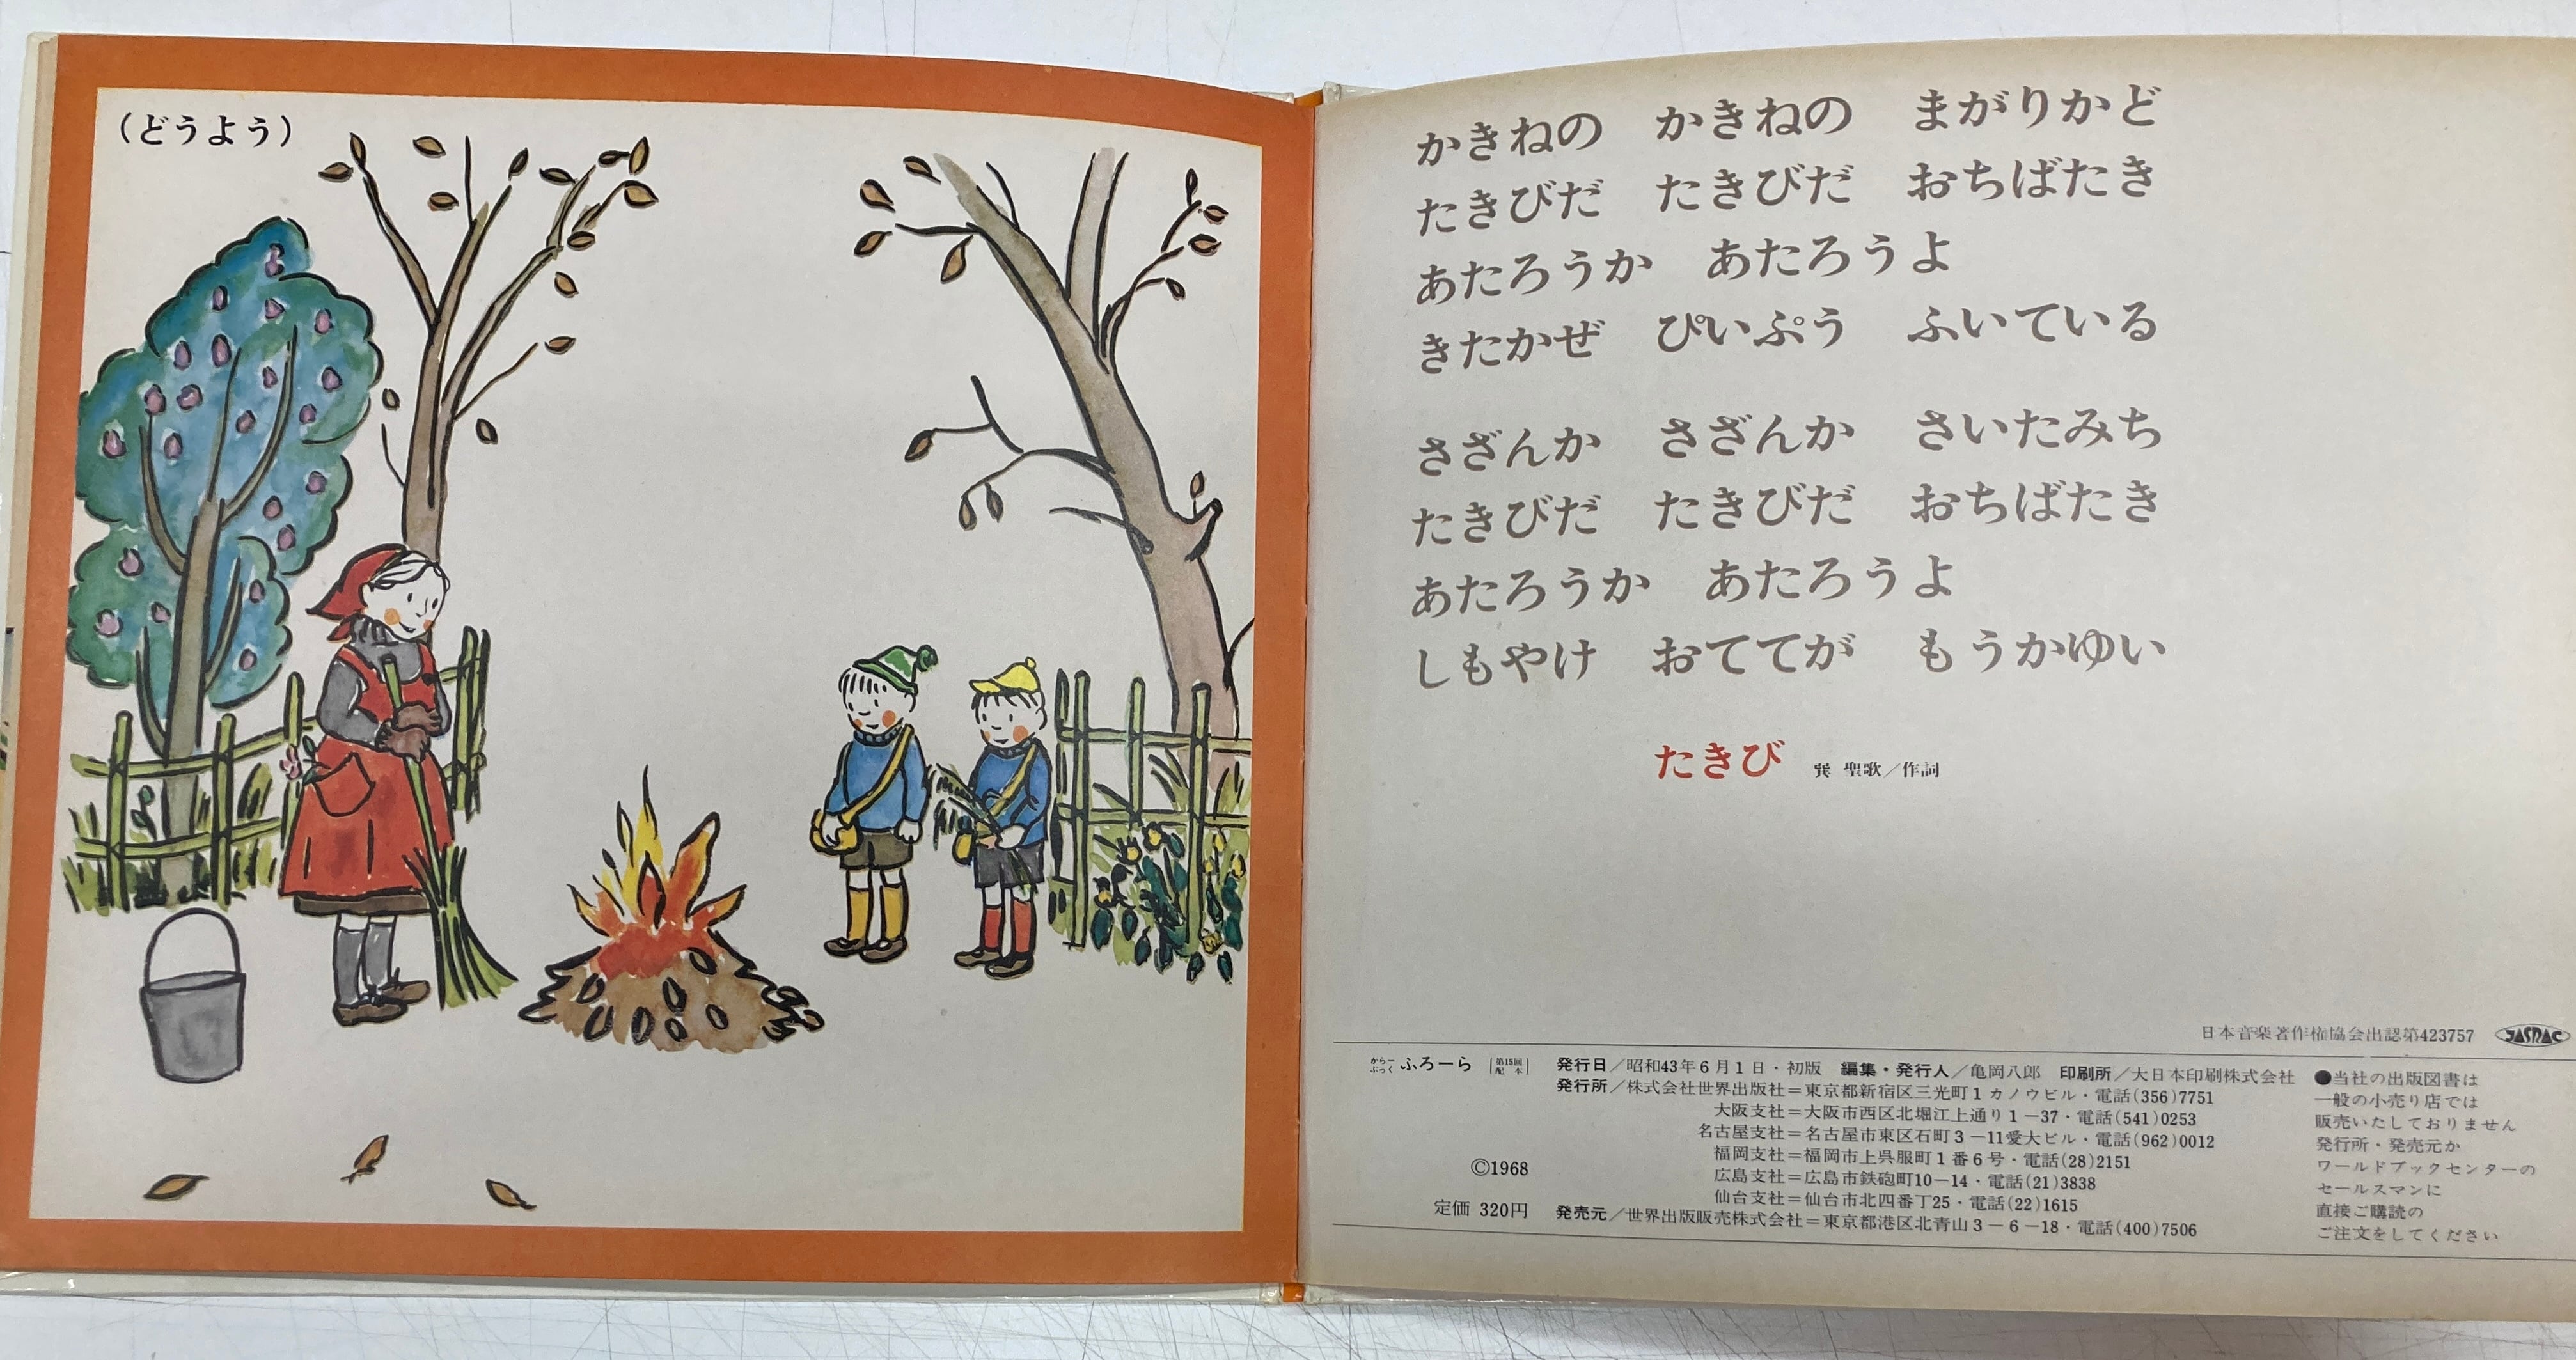 (どうよう)
かきねの　かきねの　まがりかど
たきびだ　たきびだ　おちばたき
あたろうか　あたろうよ
きたかぜ　ぴいぷう　ふいている
さざんか　さざんか　さいたみち
たきびだ　たきびだ　おちばたき
あたろうか　あたろうよ
しもやけ　おててが　もうかゆい
たきび　巽 聖歌／作詞
日本音楽著作権協会出認第423757 JASRAC
からーぶっく ふろーら 第15回配本
©1968
定価 320円
発行日／昭和43年6月1日・初版　編集・発行人／亀岡八郎　印刷所／大日本印刷株式会社
発行所／株式会社世界出版社＝東京都新宿区三光町1 カノウビル・電話(356)7751
大阪支社＝大阪市西区北堀江上通り1－37・電話(541)0253
名古屋支社＝名古屋市東区石町3－11愛大ビル・電話(962)0012
福岡支社＝福岡市上呉服町1番6号・電話(28)2151
広島支社＝広島市鉄砲町10－14・電話(21)3838
仙台支社＝仙台市北四番丁25・電話(22)1615
発売元／世界出版販売株式会社＝東京都港区北青山3－6－18・電話(400)7506
●当社の出版図書は
一般の小売り店では
販売いたしておりません
発行所・発売元か
ワールドブックセンターの
セールスマンに
直接ご購読の
ご注文をしてください